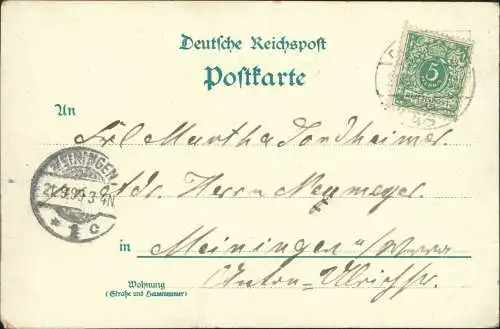 Deutsche Reichspost
Postkarte
An
Frl Martha Sondheimer
Adr. Herrn Neumeyer
in Meiningen a/Werra
Anton-Ulrichstr.
Wohnung
(Straße und Hausnummer)
MEININGEN
21.9.99. 3-4N
* 1 c
5